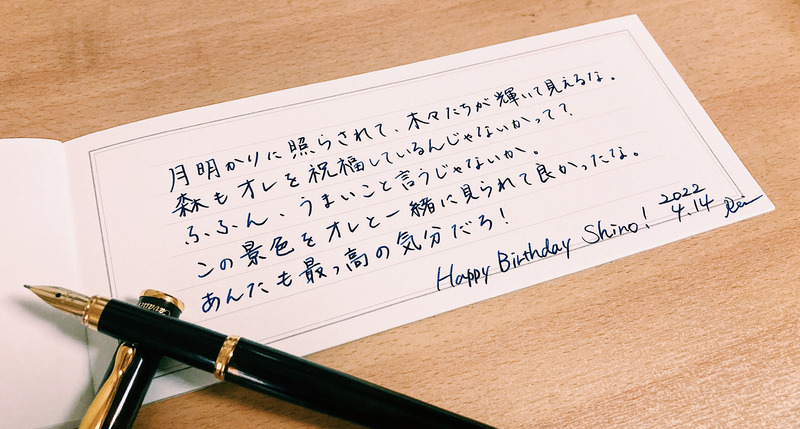 月明かりに照らされて、木々たちが輝いて見えるな。
森もオレを祝福しているんじゃないかって？
ふふん、うまいこと言うじゃないか。
この景色をオレと一緒に見られて良かったな。
あんたも最っ高の気分だろ！
Happy Birthday Shino! 2022
4.14 Rei